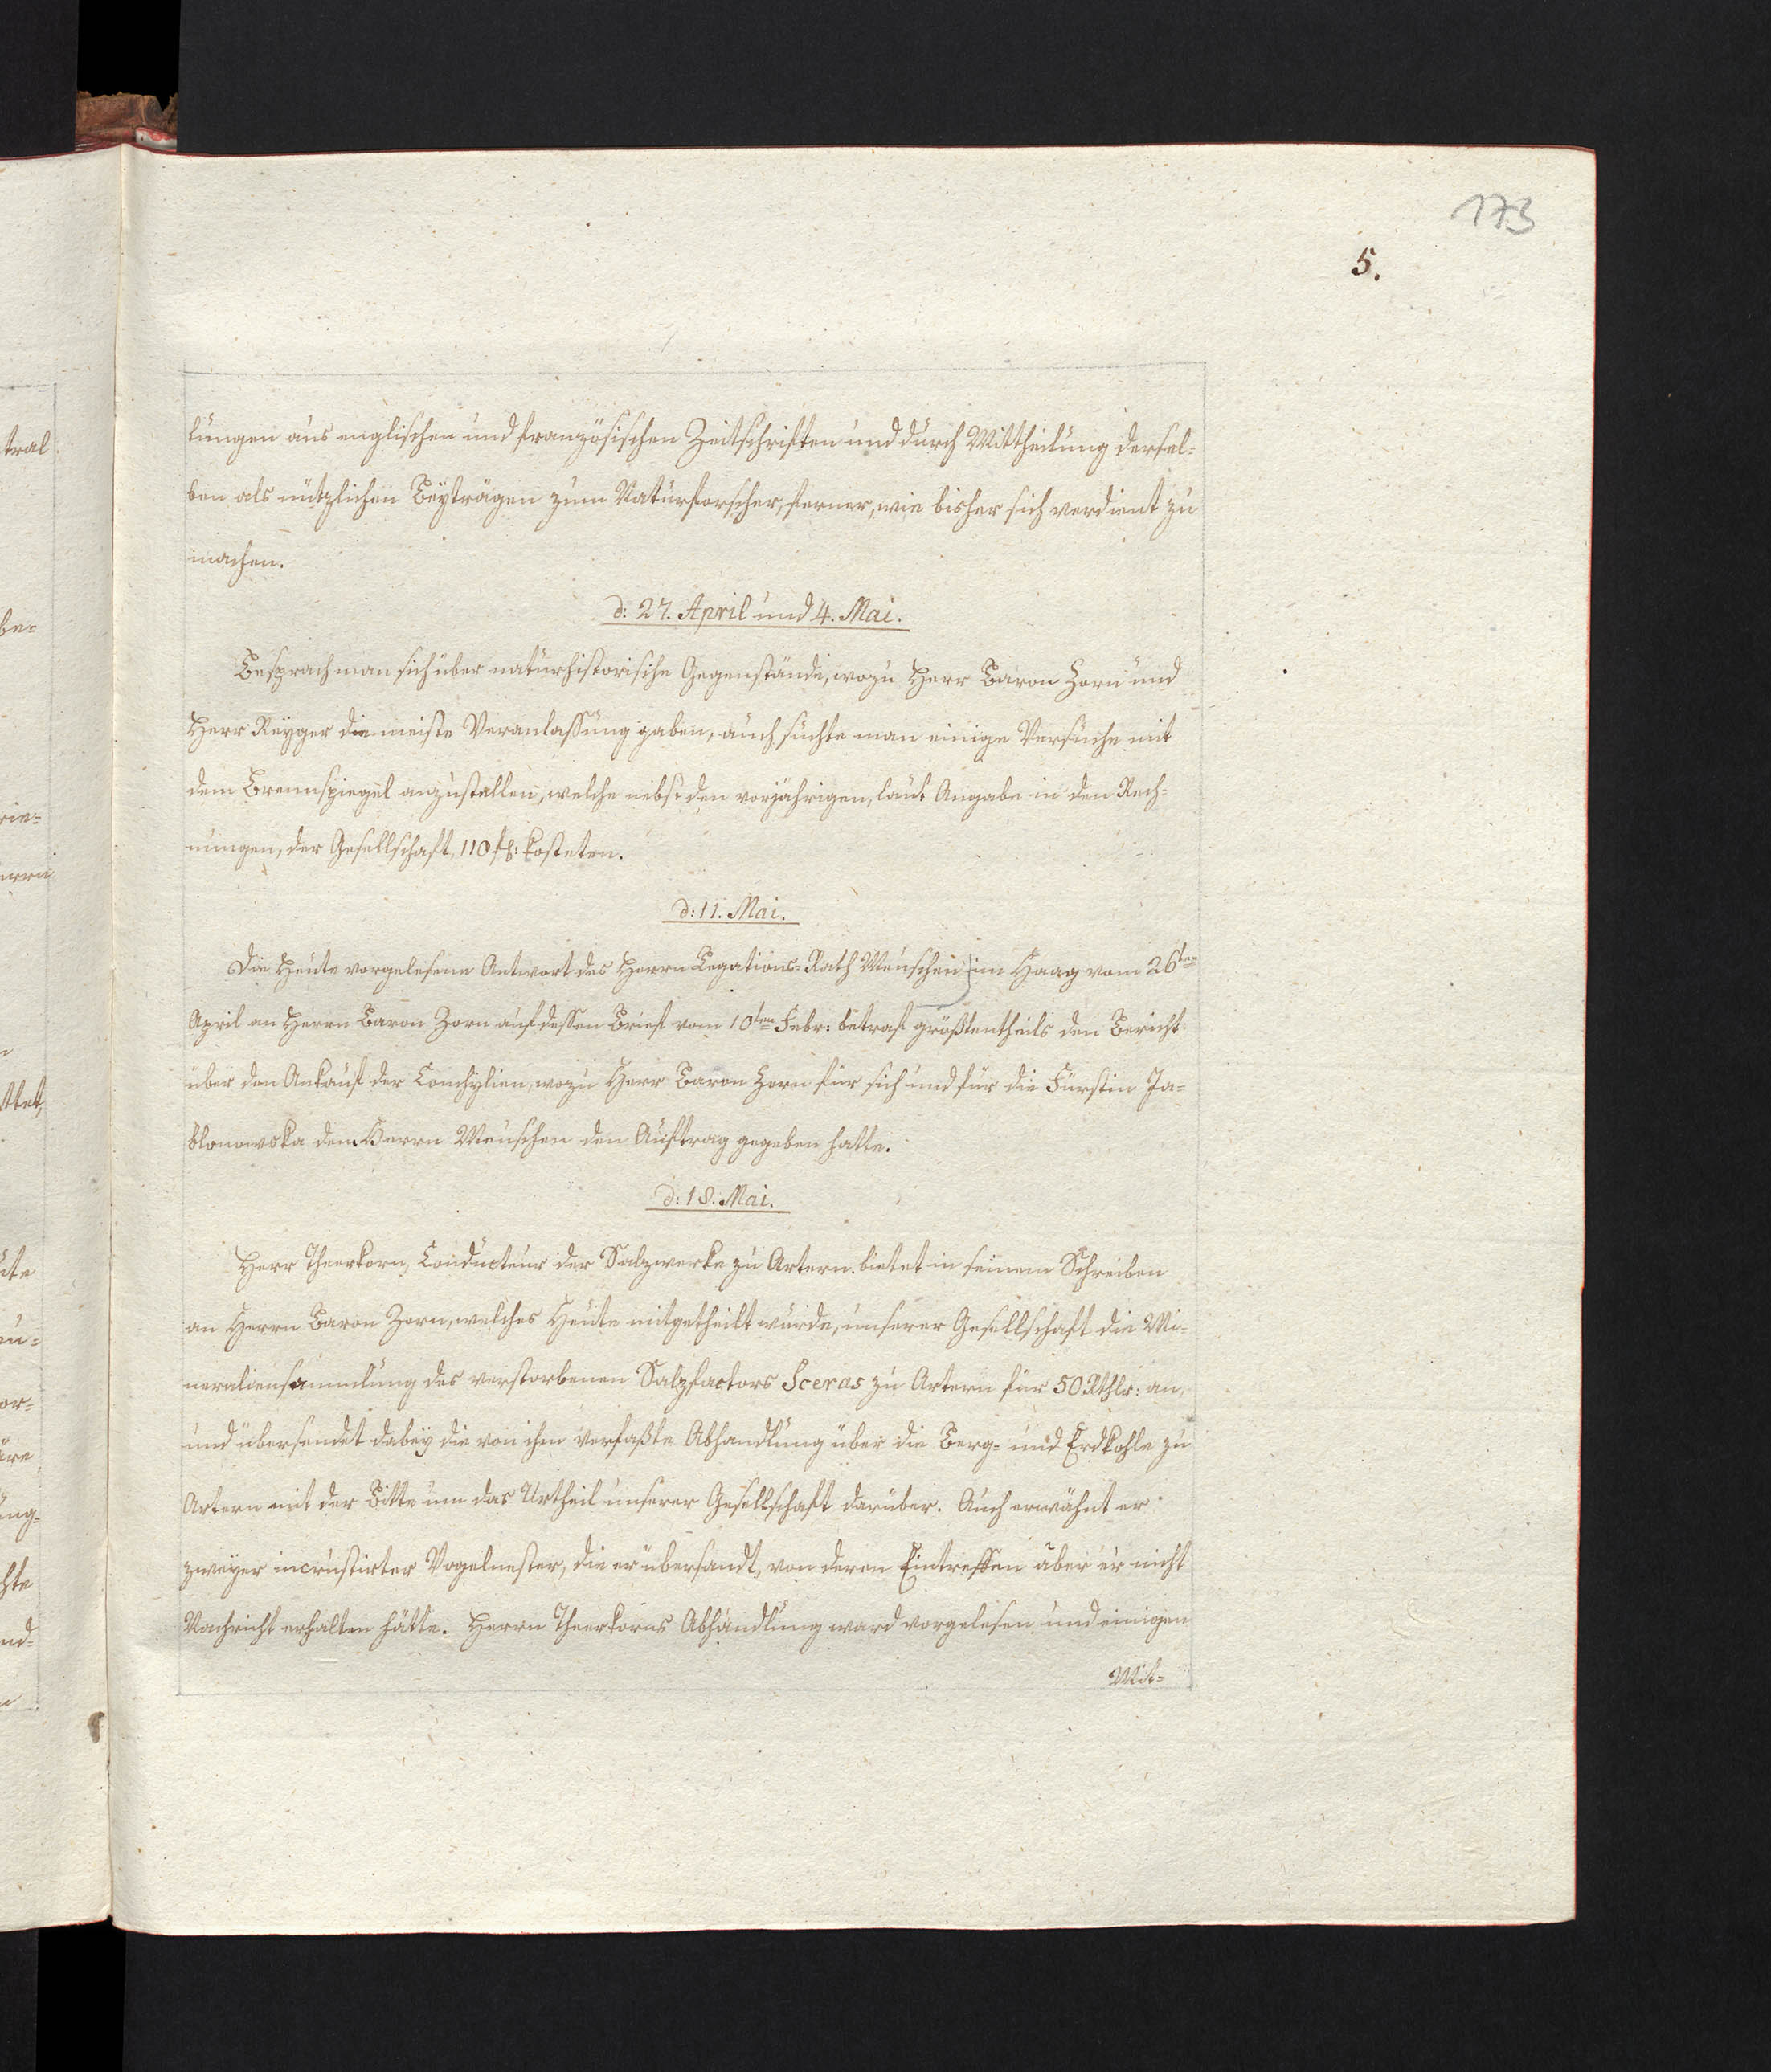 173
5.
lungen aus englischen und französischen Zeitschriften und durch Mittheilung dersel-
ben als nützlichen Beyträgen zum Naturforscher, ferner, wie bisher sich verdient zu
machen.
d: 27. April und 4. Mai.
Besprach man sich über naturhistorische Gegenstände, wozu Herr Baron Zorn und
Herr Reyger die meiste Veranlassung gaben, auch suchte man einige Versuche mit
dem Brennspiegel anzustellen, welche nebst den vorjährigen, laut Angabe in den Rech-
nungen, der Gesellschaft, 110 kosteten.
d: 11. Mai.
Die Heute vorgelesene Antwort des Herrn Legations-Rath Meuschen im Haag vom 26ten
April an Herrn Baron Zorn auf dessen Brief vom 10ten Febr: betraf größtentheils den Bericht
über den Ankauf der Conchylien, wozu Herr Baron Zorn für sich und für die Fürstin Ja-
blonowska dem Herrn Meuschen den Auftrag gegeben hatte.
d: 18. Mai.
Herr Theerkorn, Conducteur der Salzwerke zu Artern bietet in seinem Schreiben
an Herrn Baron Zorn, welches Heute mitgetheilt wurde, unserer Gesellschaft die Mi-
neraliensammlung des verstorbenen Salzfactors Sceras zu Artern für 50 Rthlr: an,
und übersendet dabey die von ihm verfaßte Abhandlung über die Berg- und Erdkohle zu
Artern mit der Bitte um das Urtheil unserer Gesellschaft darüber. Auch erwähnt er
zweyer incrustirter Vogelnester, die er übersandt, von deren Eintreffen aber er nicht
Nachricht erhalten hätte. Herrn Theerkorns Abhandlung ward vorgelesen und einigen
Mit-